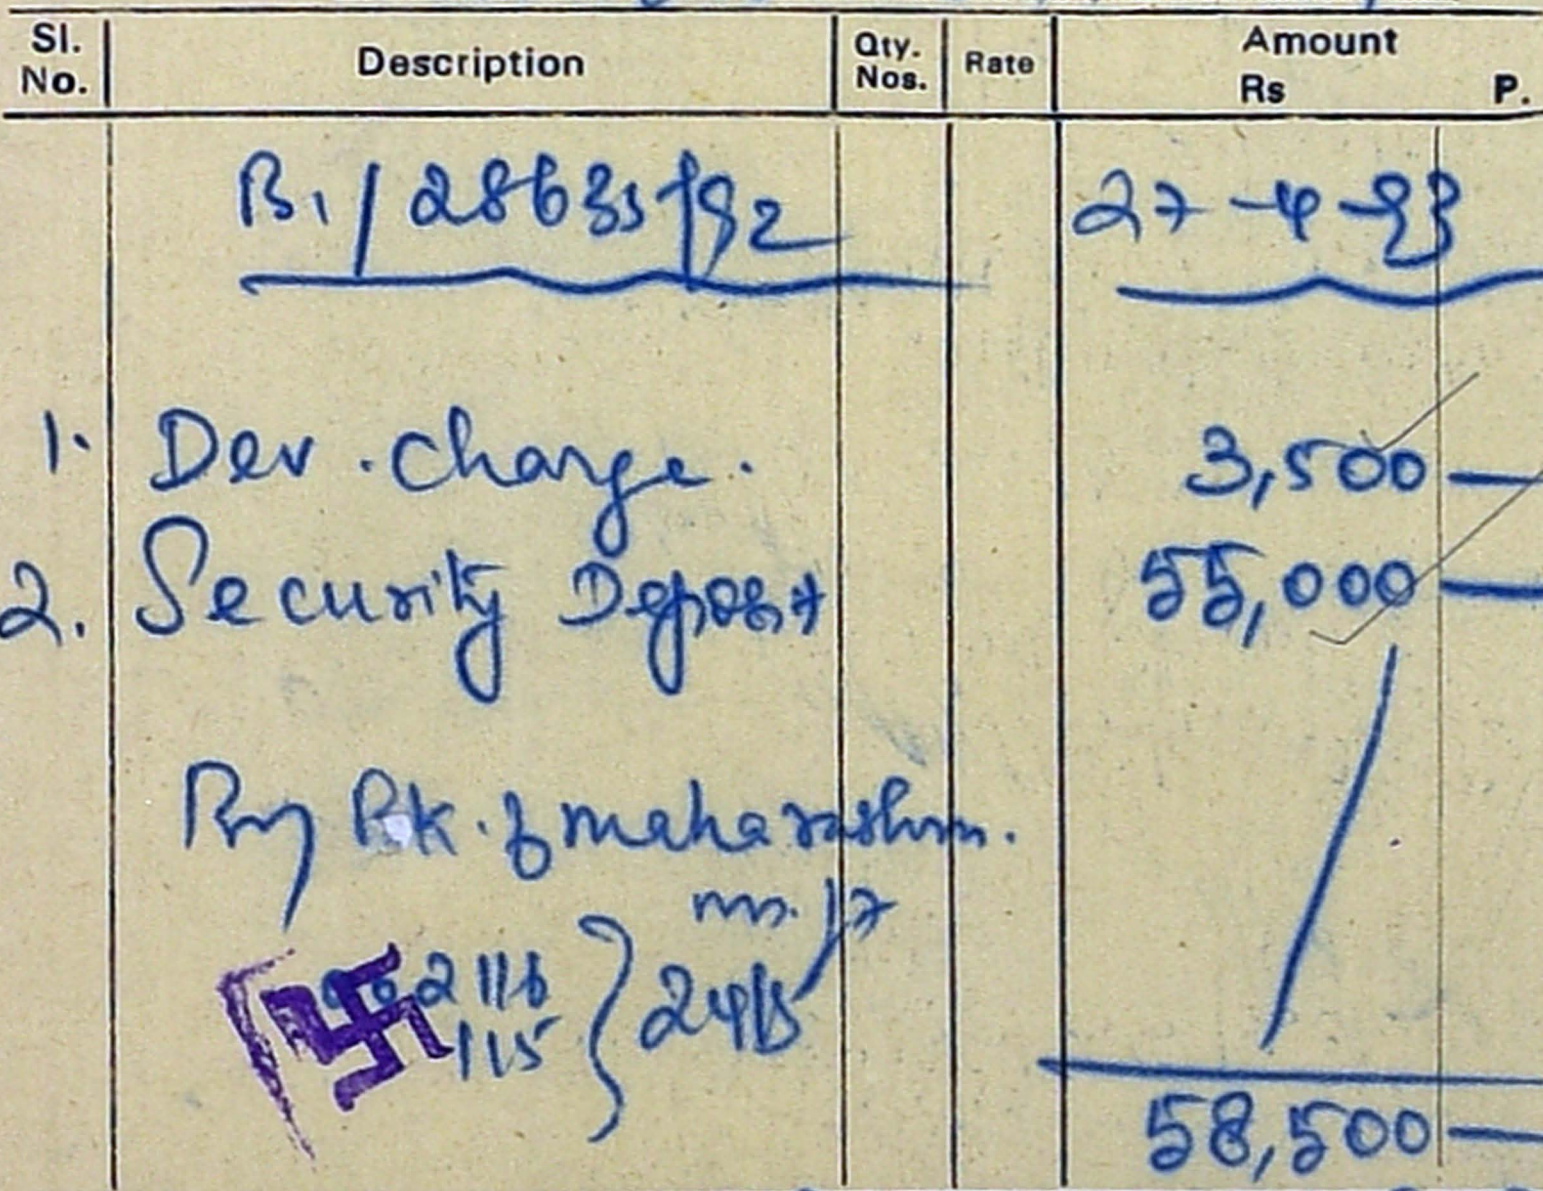 Sl. No. Description Qty. Nos. Rate Amount Rs P.
B1/28635/92 27-4-93
1. Dev. charge. 3,500 —
2. Security Deposit 55,000 —
By Bk. of maharashtra.
ms. 17
2116
115 } 24/5
58,500 —